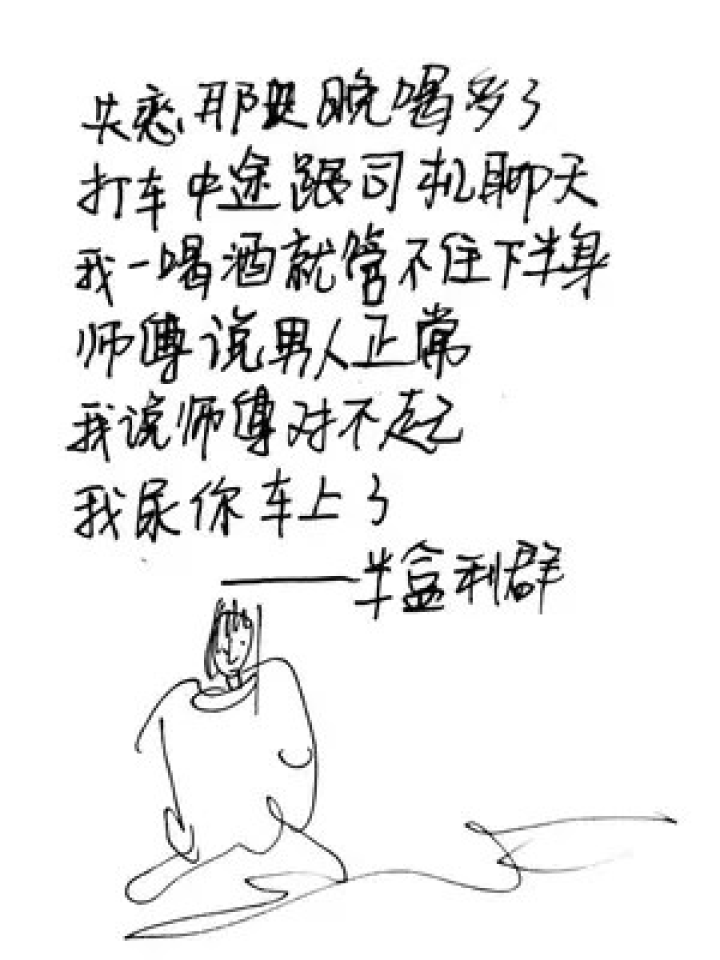 失恋那是晚喝多了
打车中途跟司机聊天
我一喝酒就管不住下半身
师傅说男人正常
我说师傅对不起
我尿你车上了
——半盒利群